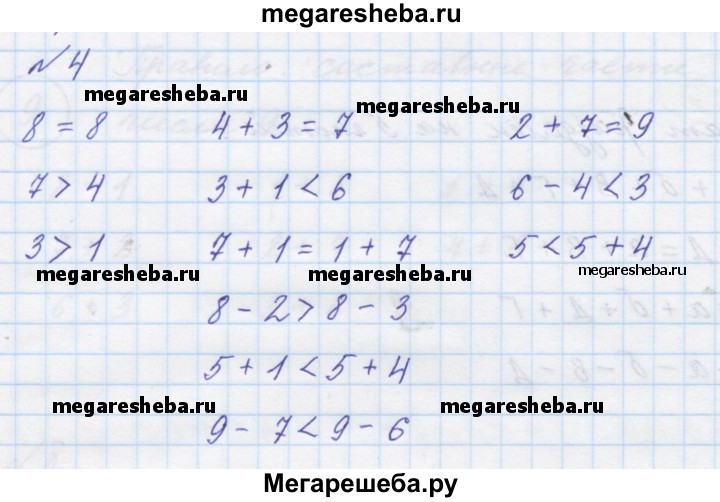 megaresheba.ru
№ 4
megaresheba.ru megaresheba.ru
8 = 8 4 + 3 = 7 2 + 7 = 9
7 > 4 3 + 1 < 6 6 - 4 < 3
3 > 1 7 + 1 = 1 + 7 5 < 5 + 4
megaresheba.ru megaresheba.ru megaresheba.ru
8 - 2 > 8 - 3
5 + 1 < 5 + 4
megaresheba.ru megaresheba.ru
9 - 7 < 9 - 6
Мегарешеба.ру